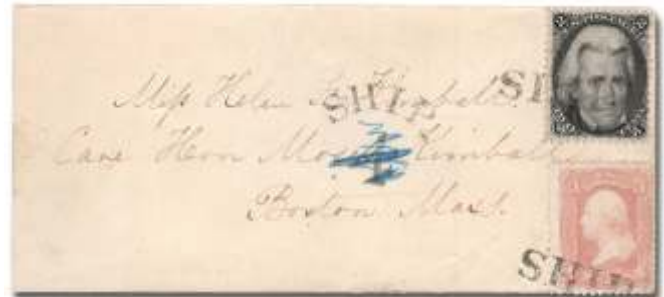 Miss Helen
SHIP
SHIP
Care Hon Moses Kimball
Boston Mass.
SHIP